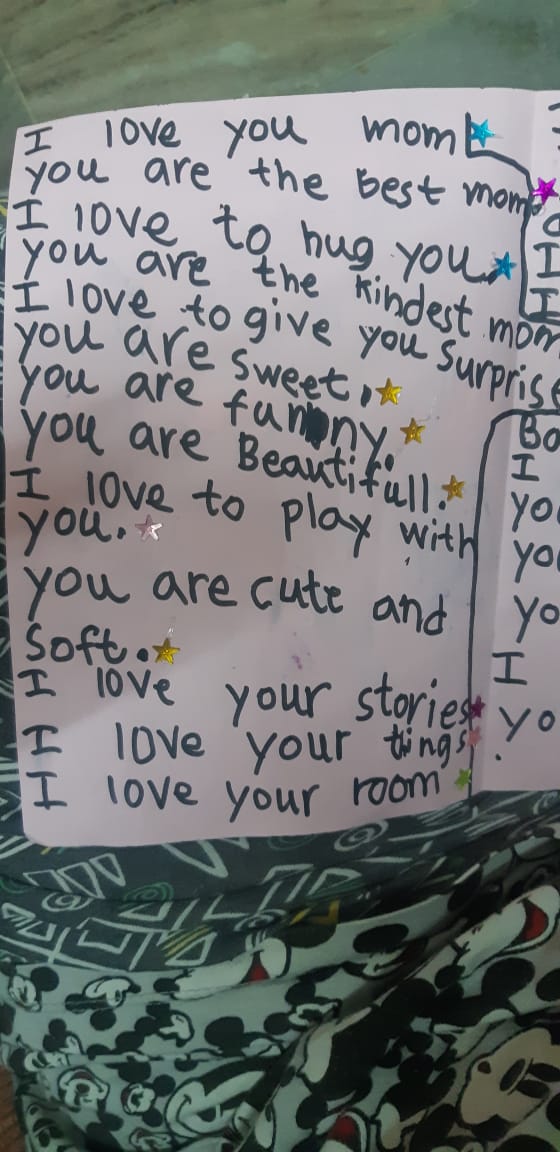 I love you mom
you are the best mom
I love to hug you
you are the kindest mom
I love to give you Surpris
you are sweet.
you are funny.
you are Beautifull.
I love to play with
you.
you are cute and
Soft.
I love your stories
I love your things
I love your room
I
I
Bo
I
yo
yo
yo
I
yo